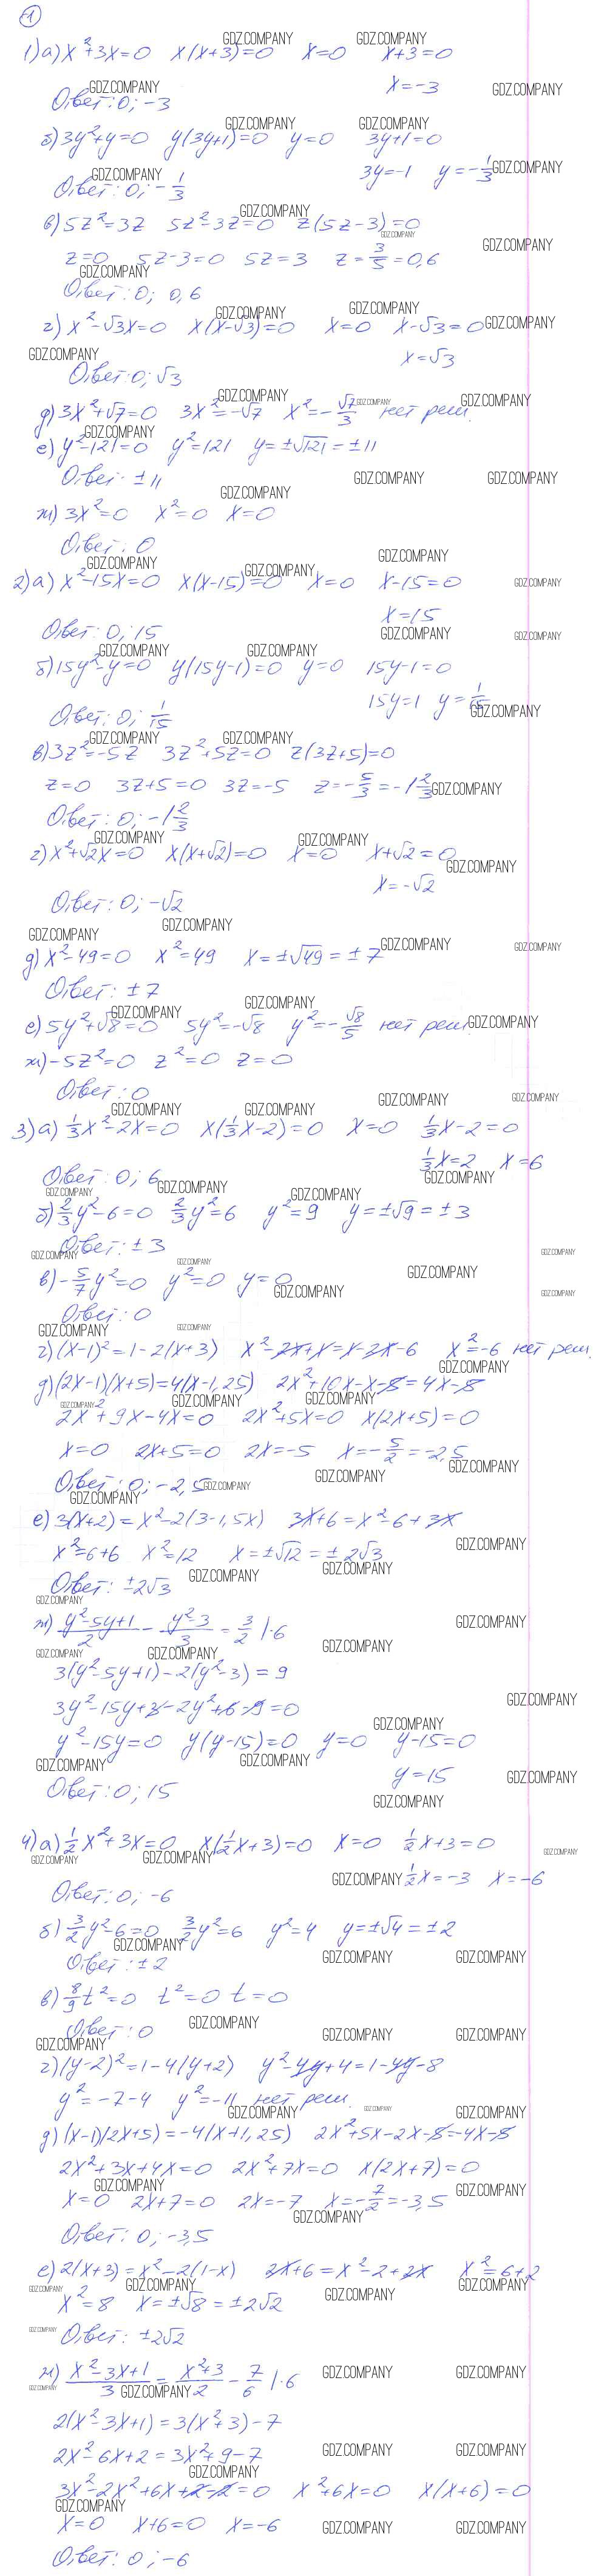 -1
1) а) x²+3x=0 x(x+3)=0 x=0 x+3=0
x=-3
Ответ: 0; -3
б) 3y²+y=0 y(3y+1)=0 y=0 3y+1=0
3y=-1 y=-1/3
Ответ: 0; -1/3
в) 5z²=3z 5z²-3z=0 z(5z-3)=0
z=0 5z-3=0 5z=3 z=3/5=0,6
Ответ: 0; 0,6
г) x²-√3x=0 x(x-√3)=0 x=0 x-√3=0
x=√3
Ответ: 0; √3
д) 3x²+√7=0 3x²=-√7 x²=-√7/3 нет реш.
е) y²-121=0 y²=121 y=±√121=±11
Ответ: ±11
ж) 3x²=0 x²=0 x=0
Ответ: 0
2) а) x²-15x=0 x(x-15)=0 x=0 x-15=0
x=15
Ответ: 0; 15
б) 15y²-y=0 y(15y-1)=0 y=0 15y-1=0
15y=1 y=1/15
Ответ: 0; 1/15
в) 3z²=-5z 3z²+5z=0 z(3z+5)=0
z=0 3z+5=0 3z=-5 z=-5/3=-1 2/3
Ответ: 0; -1 2/3
г) x²+√2x=0 x(x+√2)=0 x=0 x+√2=0
x=-√2
Ответ: 0; -√2
д) x²-49=0 x²=49 x=±√49=±7
Ответ: ±7
е) 5y²+√8=0 5y²=-√8 y²=-√8/5 нет реш.
ж) -5z²=0 z²=0 z=0
Ответ: 0
3) а) 1/3x²-2x=0 x(1/3x-2)=0 x=0 1/3x-2=0
1/3x=2 x=6
Ответ: 0; 6
б) 2/3y²-6=0 2/3y²=6 y²=9 y=±√9=±3
Ответ: ±3
в) -5/7y²=0 y²=0 y=0
Ответ: 0
г) (x-1)²=1-2(x+3) x²-2x+1=1-2x-6 x²=-6 нет реш.
д) (2x-1)(x+5)=4(x-1,25) 2x²+10x-x-5=4x-5
2x²+9x-4x=0 2x²+5x=0 x(2x+5)=0
x=0 2x+5=0 2x=-5 x=-5/2=-2,5
Ответ: 0; -2,5
е) 3(x+2)=x²-2(3-1,5x) 3x+6=x²-6+3x
x²=6+6 x²=12 x=±√12=±2√3
Ответ: ±2√3
ж) (y²-5y+1)/2-(y²-3)/3=3/2 |·6
3(y²-5y+1)-2(y²-3)=9
3y²-15y+3-2y²+6-9=0
y²-15y=0 y(y-15)=0 y=0 y-15=0
y=15
Ответ: 0; 15
4) а) 1/2x²+3x=0 x(1/2x+3)=0 x=0 1/2x+3=0
1/2x=-3 x=-6
Ответ: 0; -6
б) 3/2y²-6=0 3/2y²=6 y²=4 y=±√4=±2
Ответ: ±2
в) 8/9t²=0 t²=0 t=0
Ответ: 0
г) (y-2)²=1-4(y+2) y²-4y+4=1-4y-8
y²=-7-4 y²=-11 нет реш.
д) (x-1)(2x+5)=-4(x+1,25) 2x²+5x-2x-5=-4x-5
2x²+3x+4x=0 2x²+7x=0 x(2x+7)=0
x=0 2x+7=0 2x=-7 x=-7/2=-3,5
Ответ: 0; -3,5
е) 2(x+3)=x²-2(1-x) 2x+6=x²-2+2x x²=6+2
x²=8 x=±√8=±2√2
Ответ: ±2√2
ж) (x²-3x+1)/3=(x²+3)/2-7/6 |·6
2(x²-3x+1)=3(x²+3)-7
2x²-6x+2=3x²+9-7
3x²-2x²+6x+2-2=0 x²+6x=0 x(x+6)=0
x=0 x+6=0 x=-6
Ответ: 0; -6
GDZ.COMPANY